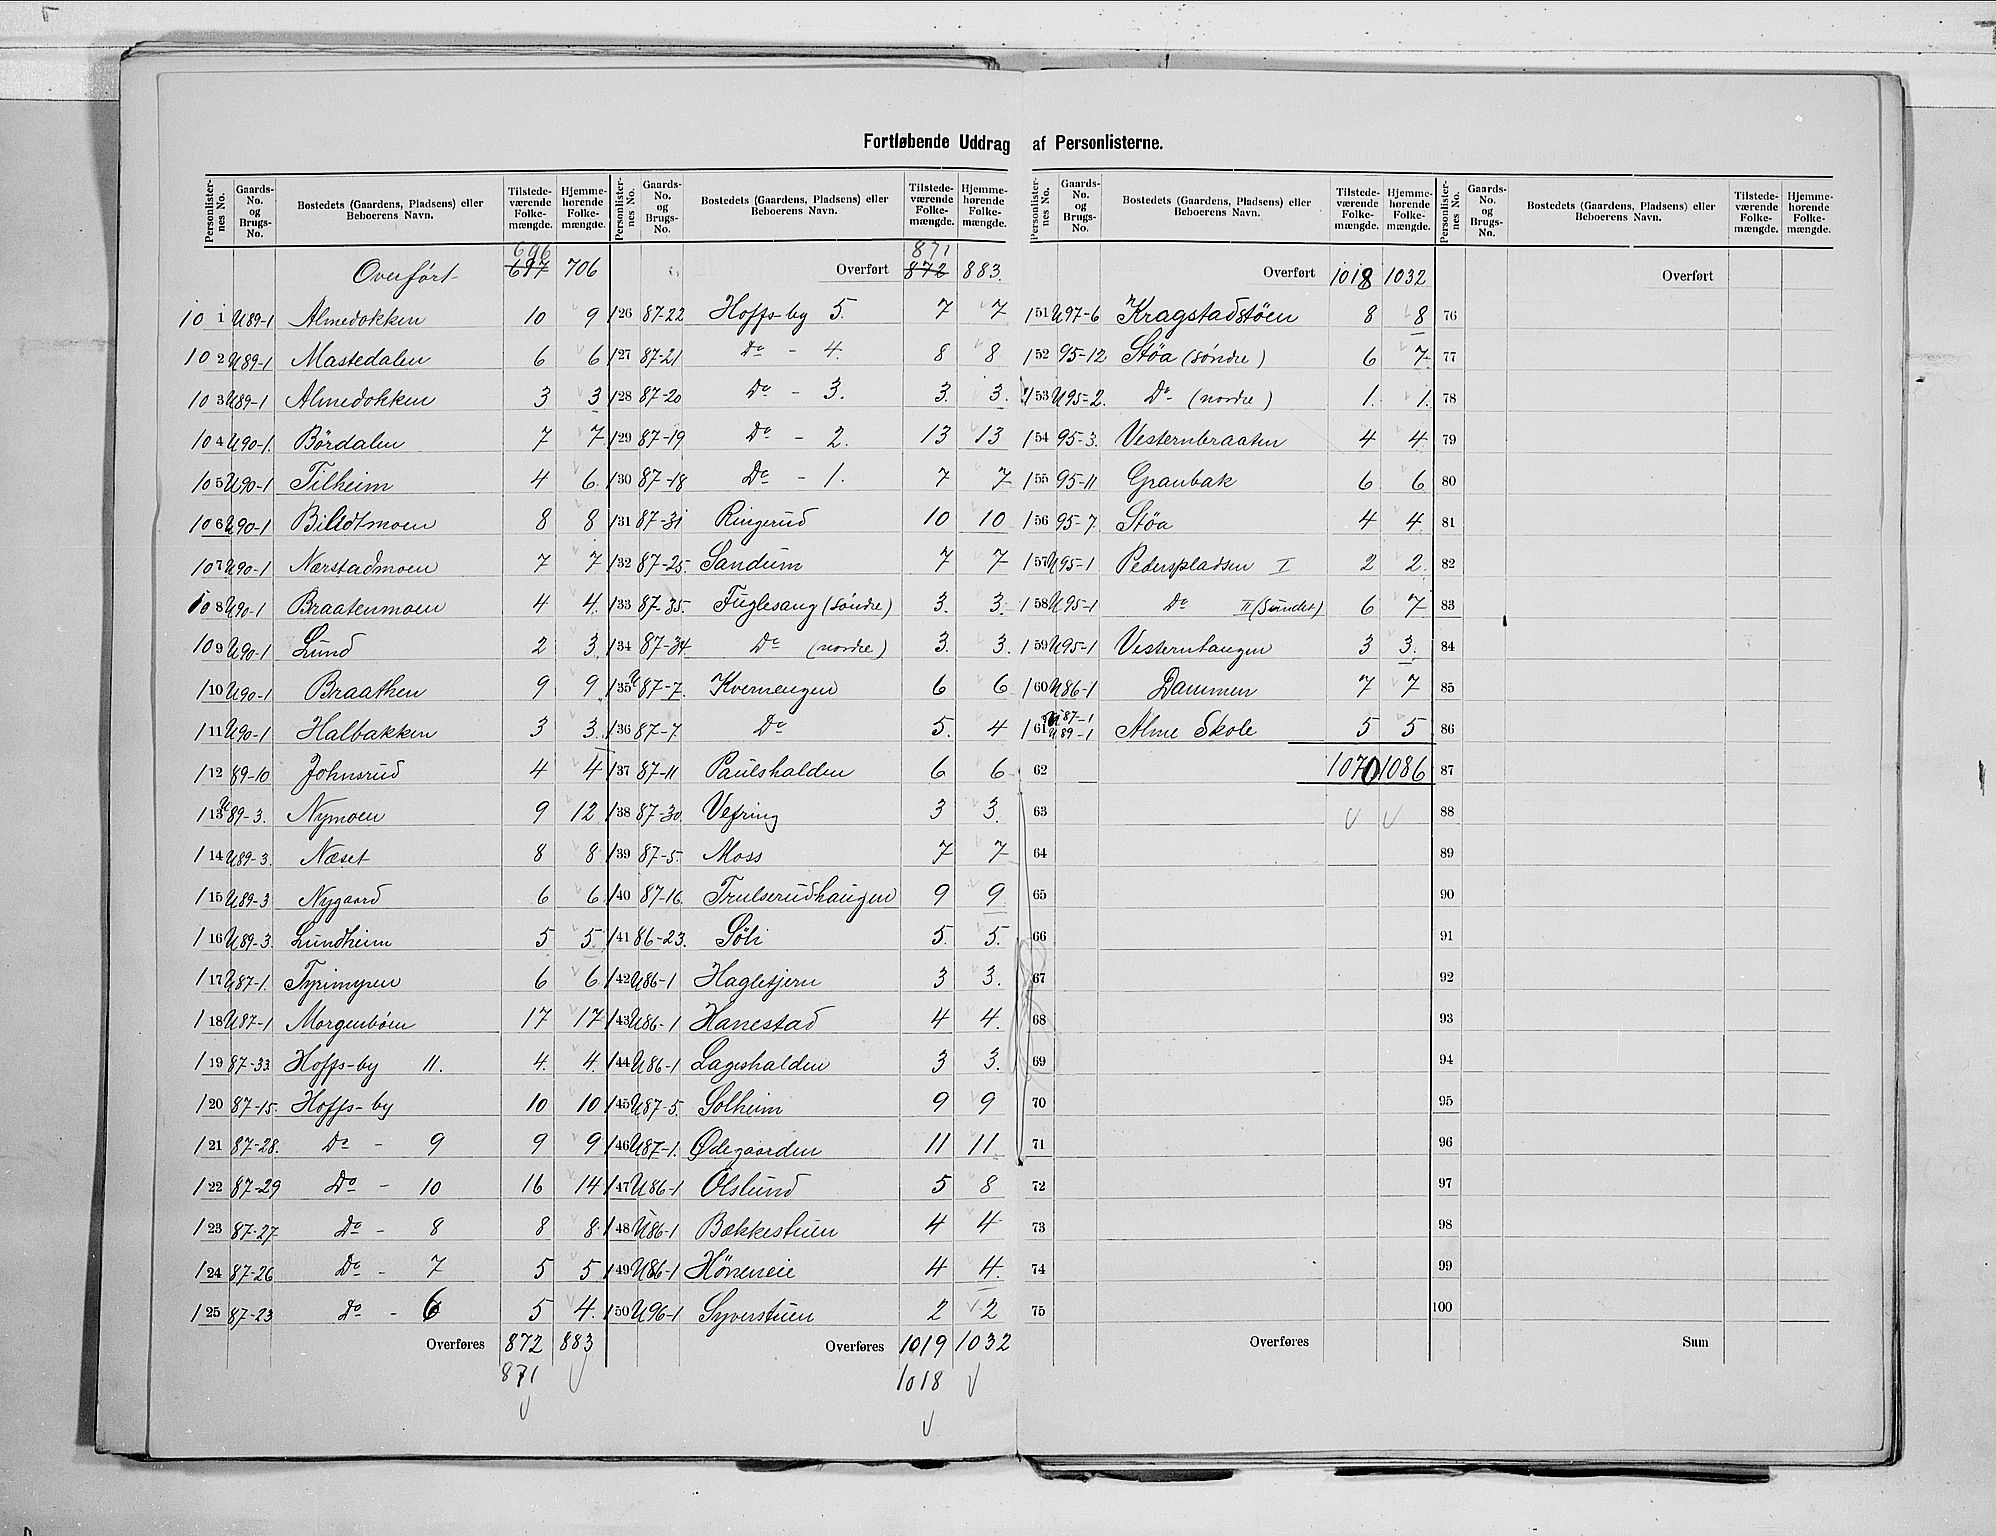 Fortløbende Uddrag af Personlisterne.
Personlisternes No. Gaards-No. og Brugs-No. Bostedets (Gaardens, Pladsens) eller Beboerens Navn. Tilstedeværende Folkemængde. Hjemmehørende Folkemængde.
696
Overført 697 706
101 U89-1 Almedokken 10 9
102 U89-1 Mastedalen 6 6
103 U89-1 Almedokken 3 3
104 U90-1. Bördalen 7 7
105 U90-1 Tilheim 4 6
106 U90-1 Bilidtmoen 8 8
107 U90-1 Nærstadmoen 7 7
108 U90-1 Braatenmoen 4 4.
109 U90-1 Lund 2 3
110 U90-1 Braathen 9 9
111 U90-1 Halbakken 3 3
112 89-10 Johnsrud 4 4
113 U89-3. Nymoen 9 12
114 U89-3. Næset 8 8
115 U89-3 Nygaard 6 6
116 U89-3. Lundheim 5 5
117 U87-1. Tyrimyren 6 6
118 U87-1 Morgenböen 17 17
119 87-33 Hoffs-by 11. 4. 4.
120 87-15. Hoffs-by 10 10
121 87-28. Do - 9 9 9
122 87-29 Do - 10 16 14
123 87-27 Do - 8 8 8
124 87-26 Do - 7 5 5
125 87-23 Do - 6 5 4.
Overføres 872 883
871
Personlisternes No. Gaards-No. og Brugs-No. Bostedets (Gaardens, Pladsens) eller Beboerens Navn. Tilstedeværende Folkemængde. Hjemmehørende Folkemængde.
871
Overført 872 883.
126 87-22 Hoffs-by 5. 7 7
127 87-21 Do - 4. 8 8
128 87-20 Do - 3. 3. 3.
129 87-19 Do - 2. 13 13
130 87-18 Do - 1. 7 7
131 87-31 Ringerud 10 10
132 87-25. Sandum 7 7
133 87-35. Fuglesang (söndre) 3. 3.
134 87-34 Do (nordre) 3. 3.
135 U87-7. Kvernengen 6 6
136 87-7 Do 5. 4
137 87-11 Paulshalden 6 6
138 87-30 Vefring 3 3.
139 87-5. Moss 7 7
140 87-16. Trulserudhaugen 9 9
141 86-23. Söli 5. 5.
142 U86-1 Haglesjern 3 3.
143 U86-1 Hanestad 4 4.
144 U86-1 Lageshalden 3 3.
145 U87-5. Solheim 9 9
146 U87-1. Ødegaarden 11 11
147 U86-1 Olslund 5 8
148 U86-1 Bækkestuen 4 4
149 U86-1 Höneneie 4 4.
150 U96-1 Syverstuen 2 2
Overføres 1019 1032
1018
Personlisternes No. Gaards-No. og Brugs-No. Bostedets (Gaardens, Pladsens) eller Beboerens Navn. Tilstedeværende Folkemængde. Hjemmehørende Folkemængde.
Overført 1018 1032
151 U97-6 Kragstadstöen 8 8
152 95-12 Stöa (söndre) 6 7
153 U95-2. Do (nordre) 1. 1.
154 95-3. Vesternbraaten 4 4
155 95-11 Granbak 6 6
156 95-7. Stöa 4 4.
157 U95-1 Pederspladsen I 2 2
158 U95-1 Do II (Sundet) 6 7
159 U95-1 Vesterntangen 3 3.
160 U86-1 Dammen 7 7
161 U87-1 U89-1 Alme Skole 5 5
62 1070 1086
63
64
65
66
67
68
69
70
71
72
73
74
75
Overføres
Personlisternes No. Gaards-No. og Brugs-No. Bostedets (Gaardens, Pladsens) eller Beboerens Navn. Tilstedeværende Folkemængde. Hjemmehørende Folkemængde.
Overført
76
77
78
79
80
81
82
83
84
85
86
87
88
89
90
91
92
93
94
95
96
97
98
99
100
Sum